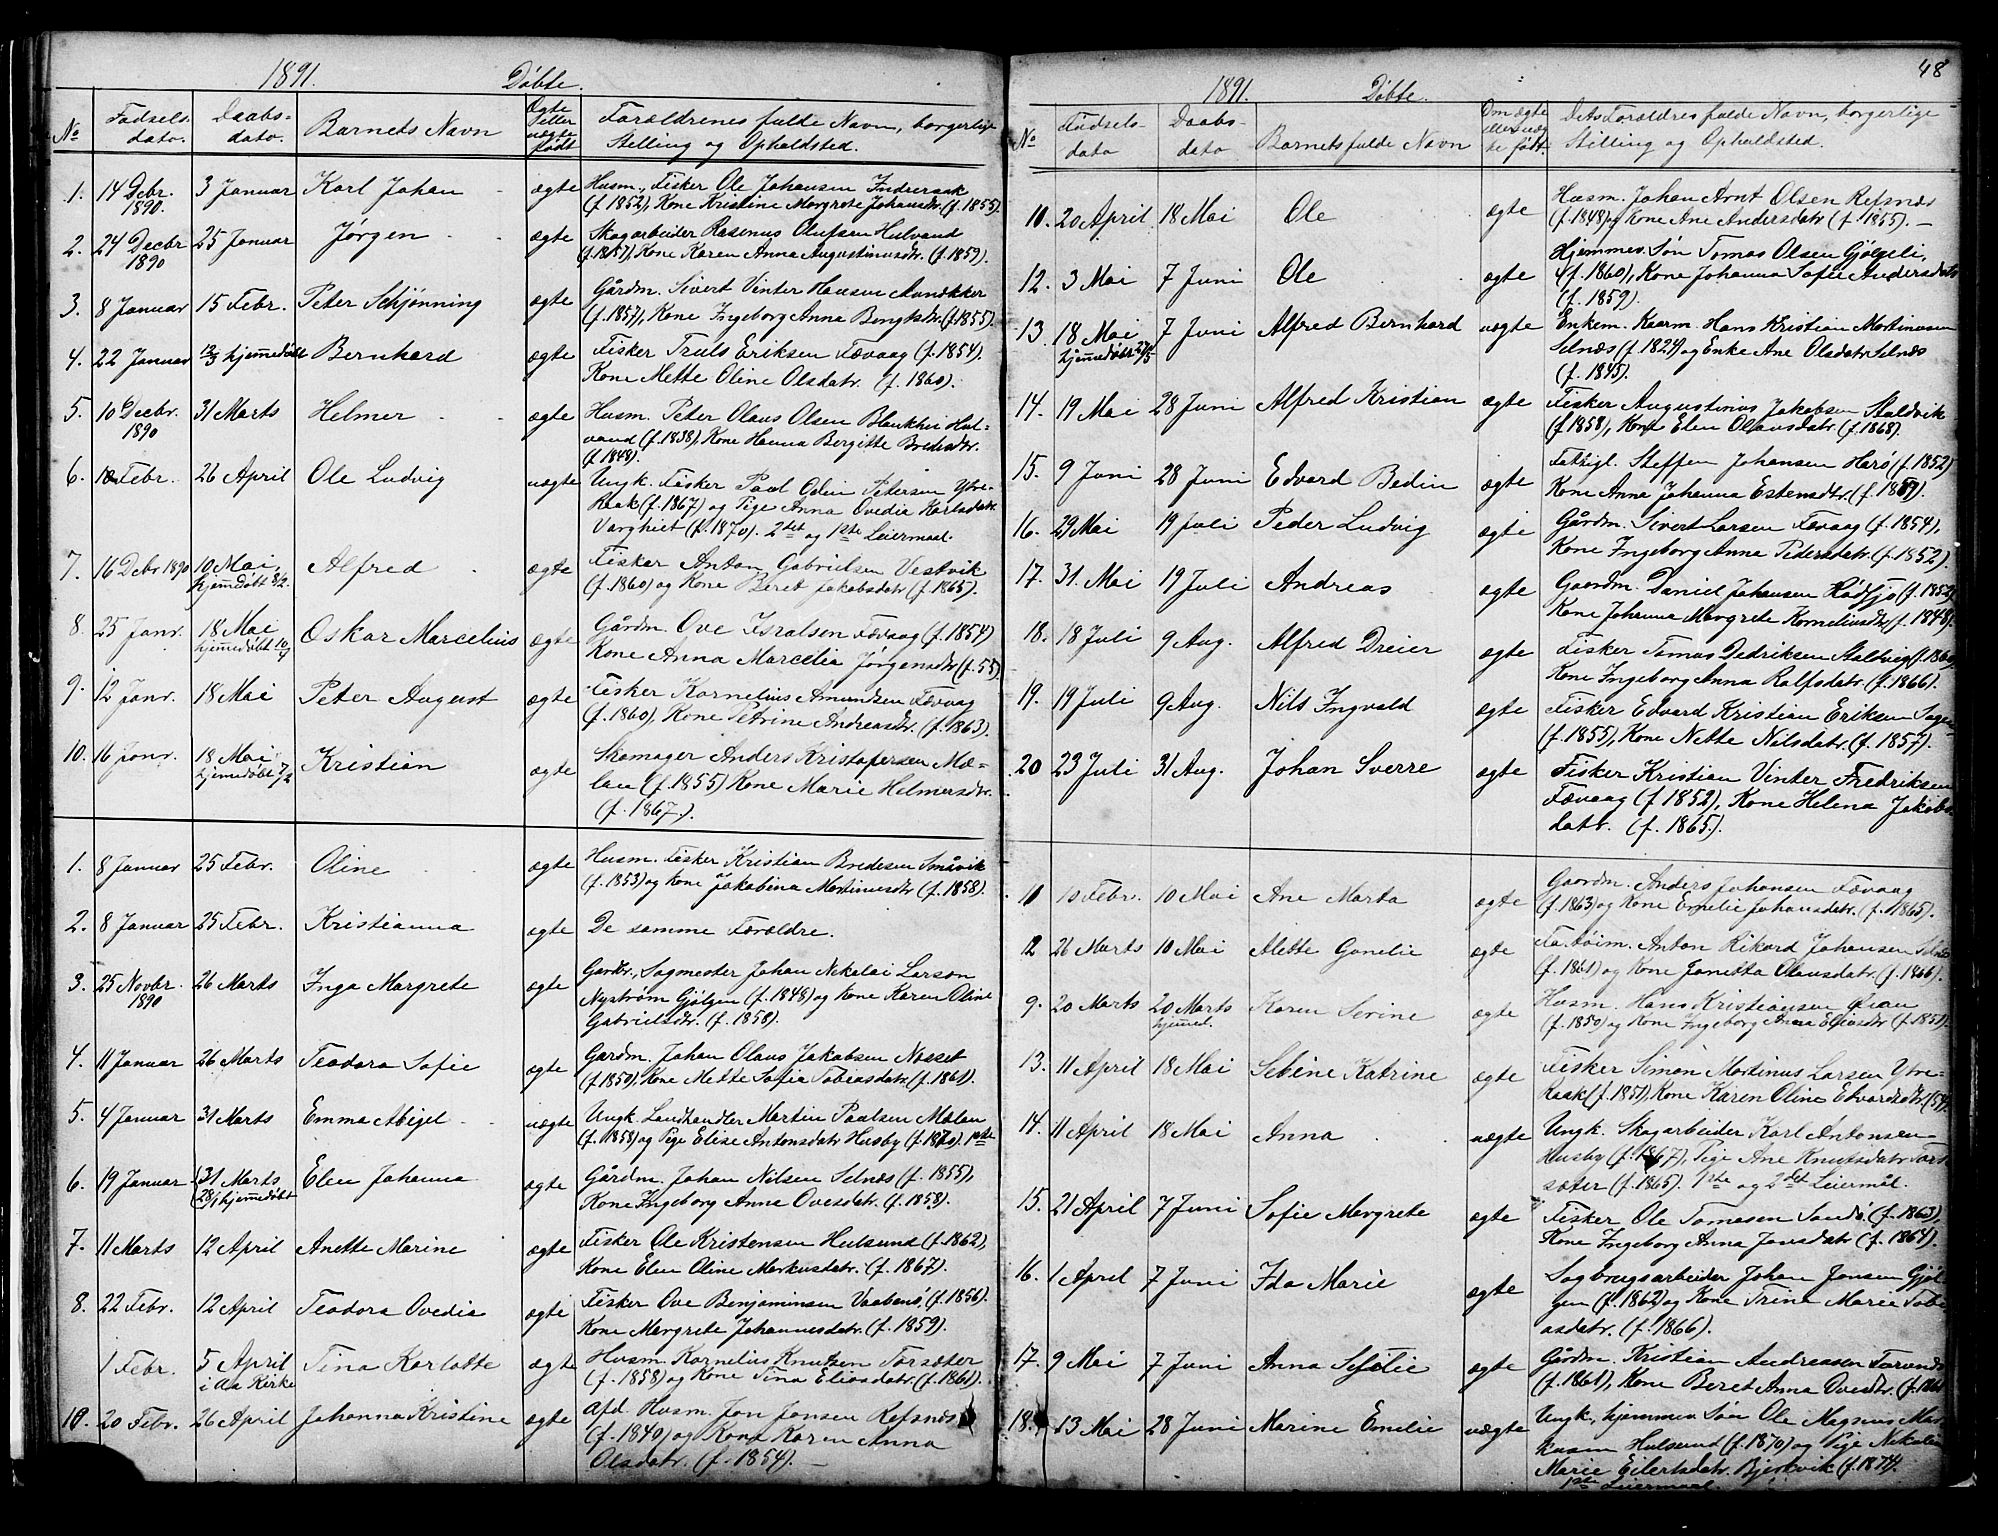 1891. Döbte.
No Födsels- dato. Daabs- dato. Barnets Navn Ægte eller uægte født Forældrenes fulde Navn, borgerlige
Stilling og Opholdsted.
1. 14 Debr. 1890. 3 Januar Karl Johan ægte Husm., Fisker Ole Johansen
(f. 1852), Kone Kristine Margrete Johansdr. (f. 1855).
2. 24 Decbr 1890 25 Januar Jørgen ægte Skogarbeider Rasmus Olufsen Hulvand
(f. 1857), Kone Karen Anna Augustinusdr. (f. 1859).
3. 8 Januar 15 Febr. Peter Schjønning ægte Gårdm. Sivert Vinter Hansen
(f. 1857), Kone Ingeborg Anna Bengtsdr. (f. 1855).
4. 22 Januar hjemmedøbt Bernhard ægte Fisker Truls Eriksen Fævaag (f. 1854).
Kone Mette Oline Olsdatr. (f. 1860).
5. 10 Decbr. 1890 31 Marts Helmer ægte Husm. Peter Olaus Olsen Hul-
vand (f. 1838), Kone Hanna Bergitte Bredesdtr.
(f. 1848).
6. Febr. 26 April Ole Ludvig uægte Ungk. Fisker Paul Odin Petersen Ytre-
Raak (f. 1867) og Pige Anna Ovedia Karlsdatr.
Varghiet (f. 1870). 2det og 1ste Leiermaal.
7. 16 Debr 1890 10 Mai, hjemmedøbt 8/2. Alfred ægte Fisker Anton Gabrielsen Vestvik
(f. 1860) og Kone Beret Jakobsdatr (f. 1865).
8. 25 Janr. 18 Mai hjemmedøbt 10/4 Oskar Marcelius ægte Gårdm. Ove Isralsen Fævaag (f. 1854)
Kone Anna Marcelia Jørgensdtr (f. 55).
9. 12 Janr. 18 Mai Peter August ægte Fisker Kornelius Amundsen Fævaag
(f. 1860), Kone Petrine Andreasdtr. (f. 1863).
10. 16 Janr. 18 Mai hjemmedøbt 7/2 Kristian ægte Skomager Anders Kristofersen Mæ-
lan (f. 1855) Kone Marie Helmersdtr.
(f. 1867.).
1. 8 Januar 25 Febr. Oline ægte Husm. Fisker Kristian Bredesen Småvik
(f. 1853) og Kone Jakobina Martinusdtr (f. 1858).
2. 8 Januar 25 Febr. Kristianna ægte De samme Forældre.
3. 25 Novbr. 1890 26 Marts Inga Margrete ægte Gårdbr., Sagmester Johan Nikolai Larson
Nyström Gjölgen (f. 1848) og Kone Karen Oline
Gabrielsdtr. (f. 1858).
4. 11 Januar 26 Marts Teodora Sofie ægte Gårdm. Johan Olaus Jakobsen Nesset
(f. 1850), Kone Mette Sofie Tobiasdatr. (f. 1861).
5. 4 Januar 31 Marts Emma Abigel uægte Ungk. Landhandler Martin Paulsen Mælan
(f. 1858) og Pige Elise Antonsdatr Husby (f. 1870). 1ste
6. 19 Januar 31 Marts 28/1 hjemmedøbt Elen Johanna ægte Gårdm. Johan Nilsen Selnæs (f. 1855),
Kone Ingeborg Anna Ovesdatr. (f. 1858).
7. 11 Marts 12 April Anette Marine ægte Fisker Ole Kristensen Hulsund (f. 1862),
Kone Elen Oline Markusdatr. (f. 1867).
8. 22 Febr. 12 April Teodora Ovedia ægte Fisker Ove Benjaminsen Vaabenö, (f. 1856).
Kone Margrete Johannesdatr. (f. 1859).
1 Febr. 5 April i Aa Kirke Tina Karlotte ægte Husm. Kornelius Knutsen Torsæter
(f. 1858) og Kone Tina Eliasdatr. (f. 1861).
10. 20 Febr. 26 April Johanna Kristine ægte Afd. Husm. Jon Jonsen Refsnæs
(f. 1840) og Kone Karen Anna
Olsdatr. (f. 1854). —
48
1891. Döbte.
No Fødsels- dato Daabs- dato Barnets fulde Navn Om ægte eller uæg- te født. Dets Forældres fulde Navn, borgerlige
Stilling og Opholdsted.
10. 20 April 18 Mai Ole ægte Husm. Johan Arnt Olsen Refsnæs
(f. 1848) og Kone Ane Andersdatr (f. 1855). —
12. 3 Mai 7 Juni Ole ægte Hjemmev. Søn Tomas Olsen Gjölgeli,
(f. 1860), Kone Johanna Sofie Andersdatr
(f. 1859).
13. 18 Mai hjemmedøbt 24/5 7 Juni Alfred Bernhard uægte Enkem. Kaarm. Hans Kristian Martinusen
Selnæs (f. 1824) og Enke Ane Olsdatr Selnæs
(f. 1845).
14. 19 Mai 28 Juni Alfred Kristian ægte Fisker Augustinus Jakobsen Staldvik
(f. 1858), Kone Elen Olausdatr. (f. 1868).
15. 9 Juni 28 Juni Edvard Bedin ægte Fattigl. Steffen Johansen Harö (f. 1852)
Kone Anna Johanna Estensdtr. (f. 1859).
16. 29 Mai 19 Juli Peder Ludvig ægte Gårdm. Sivert Larsen Fævaag (f. 1854),
Kone Ingeborg Anna Pedersdatr. (f. 1852).
17. 31. Mai 19 Juli Andreas ægte Gaardm. Daniel Johansen Rødsjø (f. 1852)
Kone Johanna Margrete Korneliusdtr (f. 1848).
18. 18 Juli 9 Aug. Alfred Dreier ægte Fisker Tomas Dedriksen Staldvig
Kone Ingeborg Anna Rolfsdatr. (f. 1866).
19. 19 Juli 9 Aug. Nils Ingvald ægte Fisker Edvard Kristian Eriksen
(f. 1855), Kone Nette Nilsdatr. (f. 1857).
20 23 Juli 31 Aug. Johan Sverre ægte Fisker Kristian Vinter Fredriksen
Fævaag (f. 1852), Kone Helena Jakobs-
datr. (f. 1865).
11 10 Febr. 10 Mai Ane Marta ægte Gaardm. Anders Johansen Fævaag
(f. 1863) og Kone Emelie Johansdatr. (f. 1865).
12 26 Marts 10 Mai Alette Gunelie ægte Anton Rikard Johansen
(f. 1861) og Kone Janetta Olausdatr. (f. 1866).
9. 20 Marts 20 Marts hjemmed. Karen Serine ægte Husm. Hans Kristiansen
(f. 1850) og Kone Ingeborg Anna Eliasdtr (f. 1851).
13. 11 April 18 Mai Sebine Katrine ægte Fisker Simon Martinus Larsen Ytre-
Raak (f. 1851), Kone Karen Oline Edvardsdtr.
14. 11 April 18 Mai Anna uægte Ungk. Skogarbeider Karl Antonsen
Husby (f. 1867), Pige Ane Knutsdatr Tor-
sæter (f. 1865). 1ste og 2det Leiermål.
15. 21 April 7 Juni Sofie Margrete ægte Fisker Ole Tomasen Sandö. (f. 1863),
Kone Ingeborg Anna Jonsdatr (f. 1864).
16. 1 April 7 Juni Ida Marie ægte Sagbrugsarbeider Johan Jonsen Gjöl-
gen (f. 1862) og Kone Trine Marie Tobi-
asdatr. (f. 1866).
17. 9 Mai 7 Juni Anna ægte Gårdm. Kristian Andreasen
(f. 1861), Kone Beret Anna Ovesdtr.
18. 13 Mai 28 Juni Marine Emelie uægte Ungk., hjemmev. Søn Ole Magnus Mar-
kusen Hulsund (f. 1870) og Pige Nikoline
Marie Eilertsdatr. Bjerkvik (f. 1874.
1ste Leiermaal.